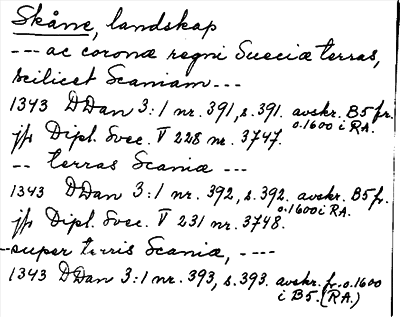 Skåne, landskap
--- ac coronæ regni Sueciæ terras,
scilicet Scaniam ---
1343 DDan 3:1 nr. 391, s. 391. avskr. B5 fr.
o. 1600 i RA.
jfr Dipl. Svec. V 228 nr. 3747.
-- terras Scaniæ ---
1343 DDan 3:1 nr. 392, s. 392. avskr. B5 fr.
o. 1600 i RA.
jfr Dipl. Svec. V 231 nr. 3748.
--super terris Scaniæ, ----
1343 DDan 3:1 nr. 393, s. 393. avskr. fr. o. 1600
i B5. (RA.)